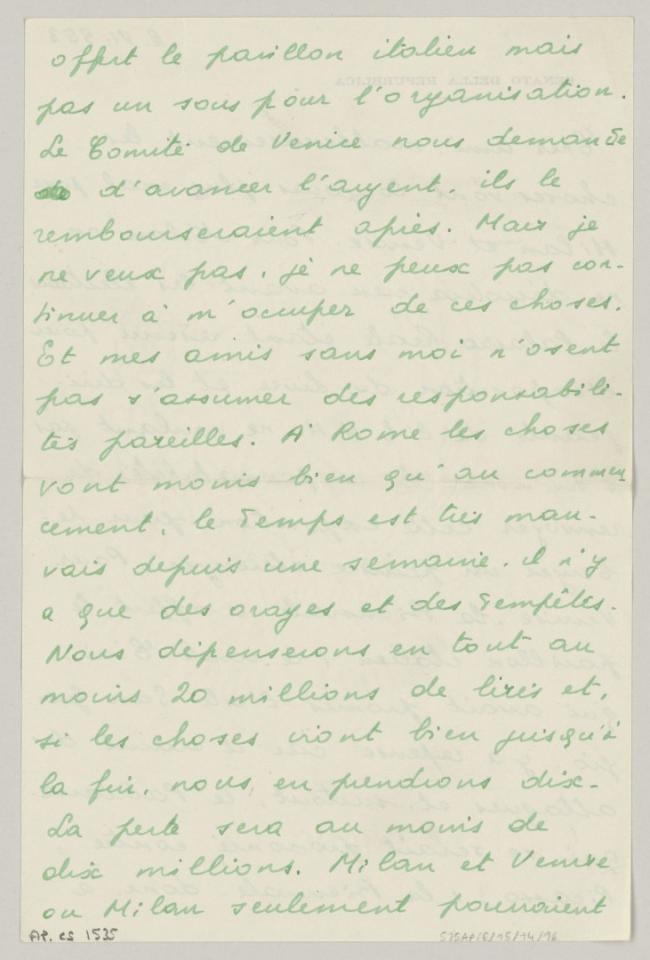 offert le pavillon italien mais
pas un sous pour l'organisation.
Le Comité de Venice nous demande
d'avancer l'argent. ils le
rembourseraient après. Mais je
ne veux pas, je ne peux pas con-
tinuer à m'occuper de ces choses.
Et mes amis sans moi n'osent
pas s'assumer des responsabili-
tés pareilles. A' Rome les choses
vont moins bien qu'au commen
cement, le temps est très mau-
vais depuis une semaine. il n'y
a que des orages et des tempêtes.
Nous dépenserons en tout au
moins 20 millions de lires et,
si les choses vont bien jusqu'à
la fin, nous en prendrons dix.
La perte sera au moins de
dix millions. Milan et Venise
ou Milan seulement pourraient
AP. CS 1535
575AP/6/15/14/16